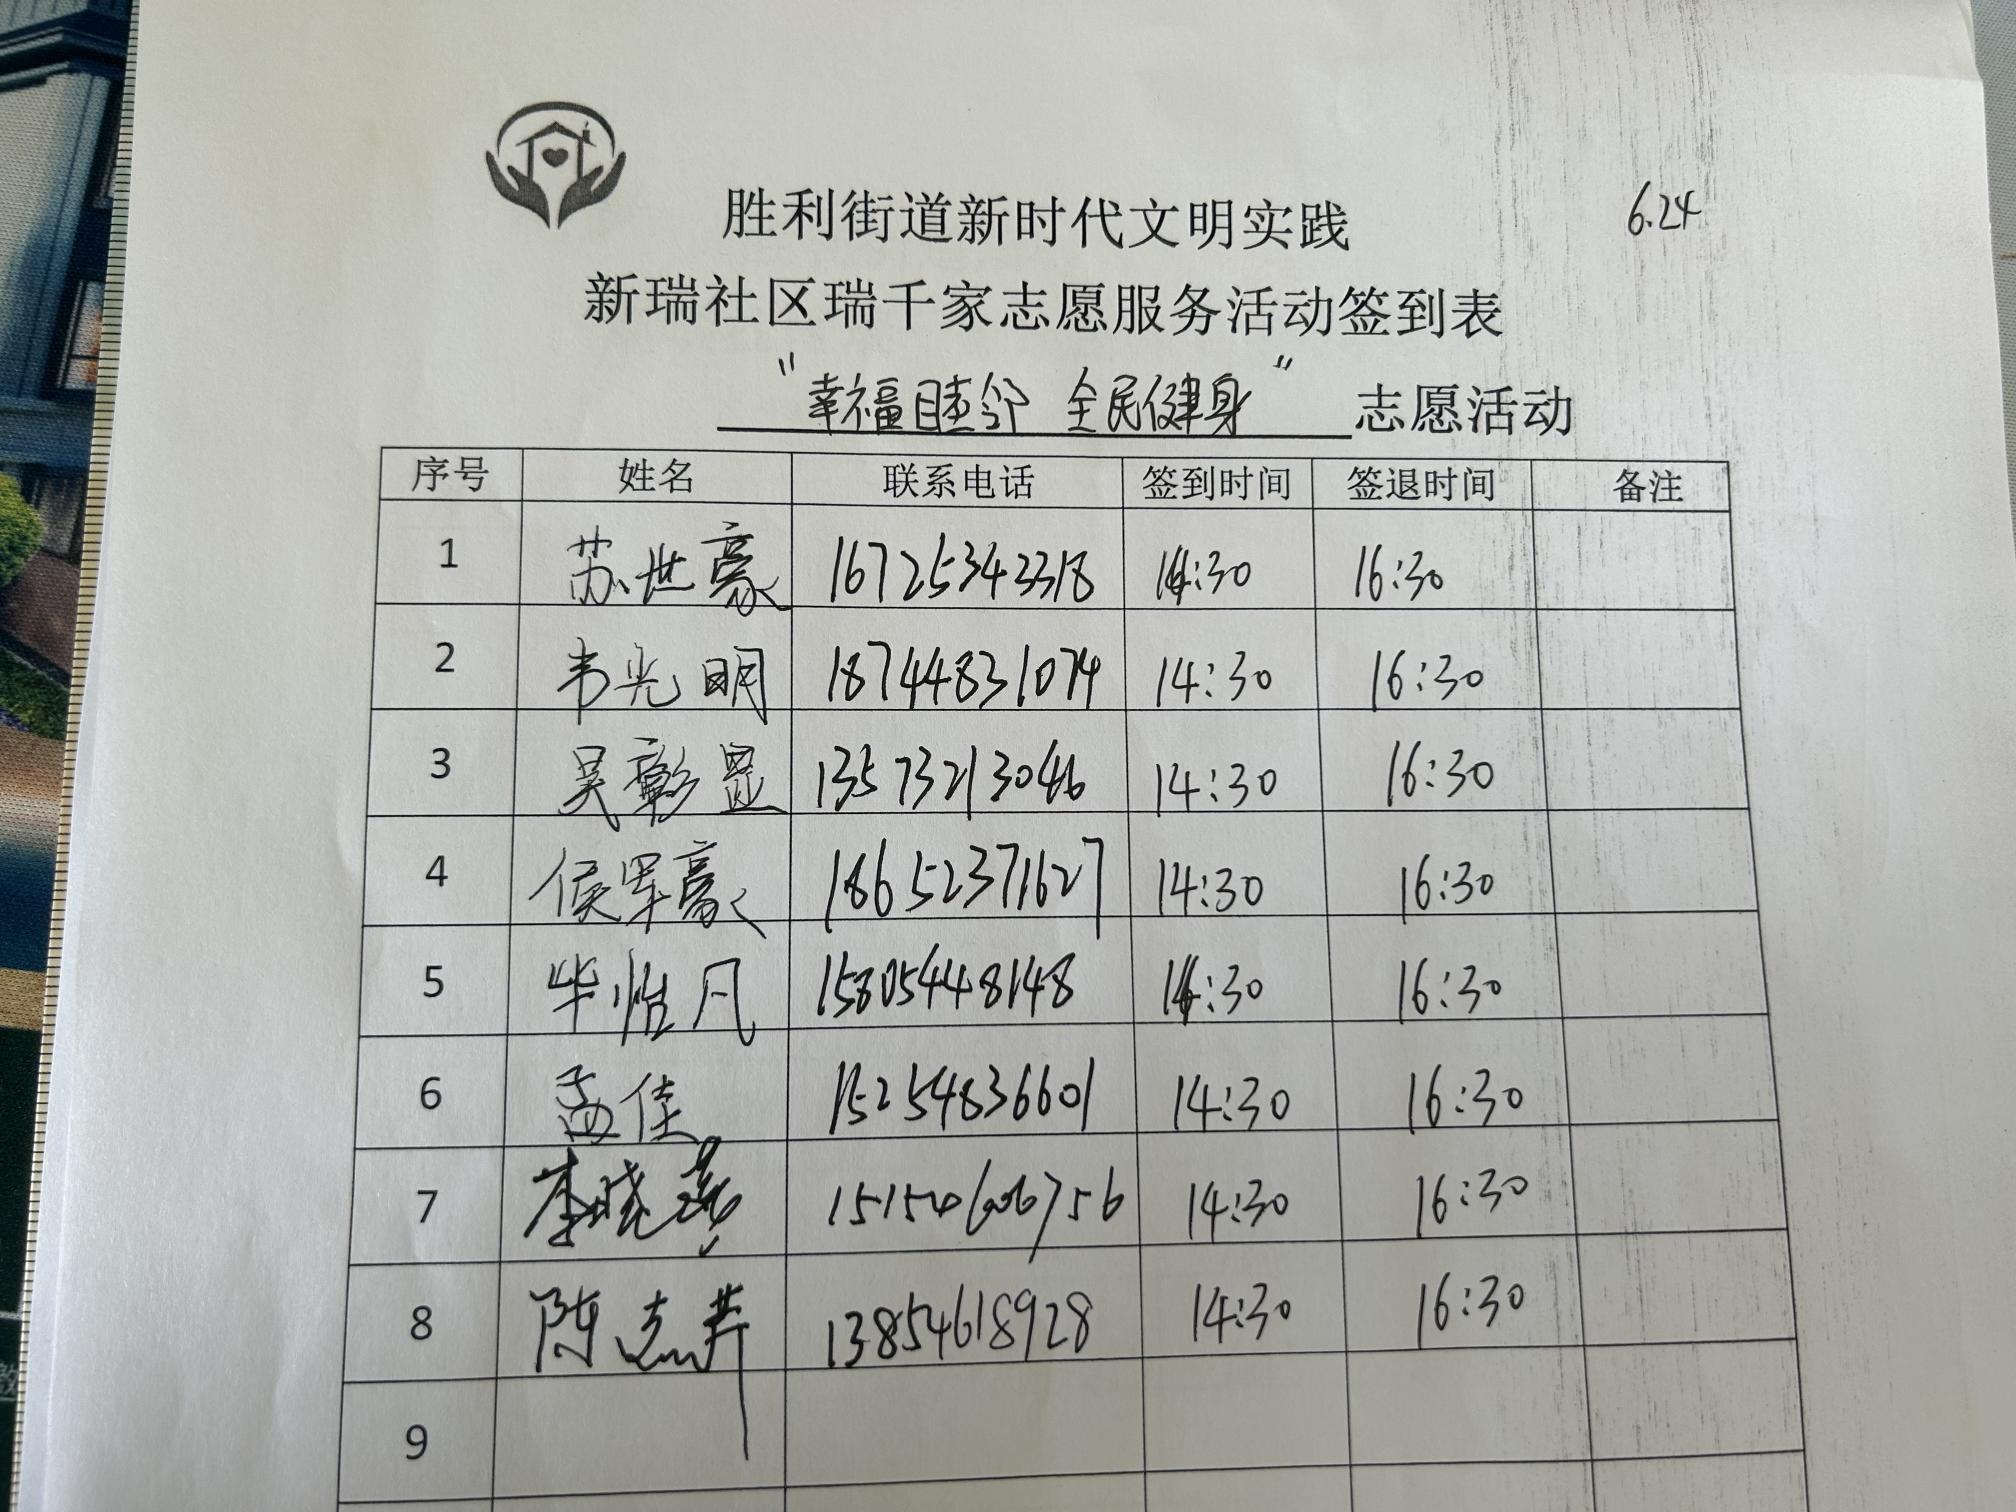 6.24
胜利街道新时代文明实践
新瑞社区瑞千家志愿服务活动签到表
“幸福睦邻 全民健身”志愿活动
序号 姓名 联系电话 签到时间 签退时间 备注
1 苏世豪 16725343318 14:30 16:30
2 韦光明 18744831074 14:30 16:30
3 吴彰 13573213046 14:30 16:30
4 侯军豪 18652371627 14:30 16:30
5 毕惟凡 15805448148 14:30 16:30
6 孟佳 15254836601 14:30 16:30
7 李晓燕 15154606756 14:30 16:30
8 陈志 13854618928 14:30 16:30
9